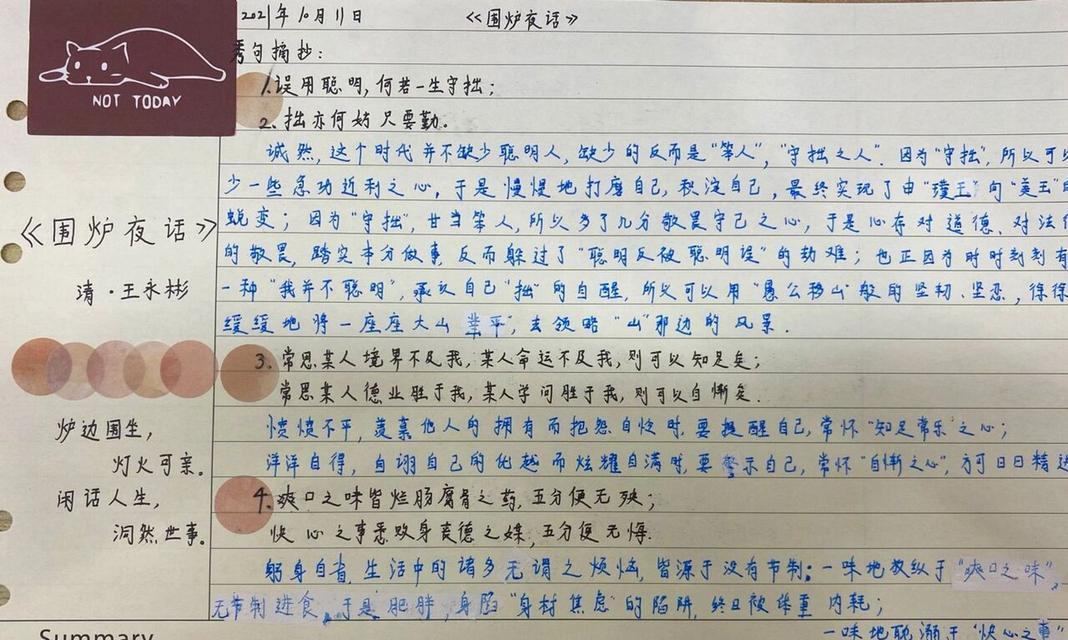 2021年10月11日
《围炉夜话》
NOT TODAY
秀句摘抄:
1.误用聪明,何若一生守拙;
2.拙亦何妨只要勤.
诚然,这个时代并不缺少聪明人,缺少的反而是“笨人”,“守拙之人”. 因为“守拙”,所以可以
少一些急功近利之心,于是慢慢地打磨自己,积淀自己,最终实现了由“璞玉”向“美玉”的
蜕变;因为“守拙”,甘当笨人,所以多了几分敬畏守己之心,于是心存对道德、对法
的敬畏,踏实本分做事,反而躲过了“聪明反被聪明误”的劫难;也正因为时时刻刻有
一种“我并不聪明”,承认自己“拙”的自醒,所以可以用“愚公移山”般的坚韧、坚忍,徐徐
缓缓地将一座座大山“凿平”,去领略“山”那边的风景.
3.常思某人境界不及我,某人命运不及我,则可以知足矣;
常思某人德业胜于我,某人学问胜于我,则可以自惭矣.
愤愤不平,羡慕他人的拥有而抱怨自怜时,要提醒自己,常怀“知足常乐”之心;
洋洋自得,自诩自己的优越而炫耀自满时,要警示自己,常怀“自惭之心”,方可日日精进
4.爽口之味皆烂肠腐骨之药,五分便无殃;
快心之事悉败身丧德之媒,五分便无悔.
躬身自省,生活中的诸多无谓之烦恼,皆源于没有节制:一味地放纵于“爽口之味”,
无节制进食,于是肥胖,身陷“身材焦虑”的陷阱,终日被体重内耗;
一味地耽溺于“快心之事”
《围炉夜话》
清·王永彬
炉边围坐,
灯火可亲。
闲话人生,
洞然世事。
Summary